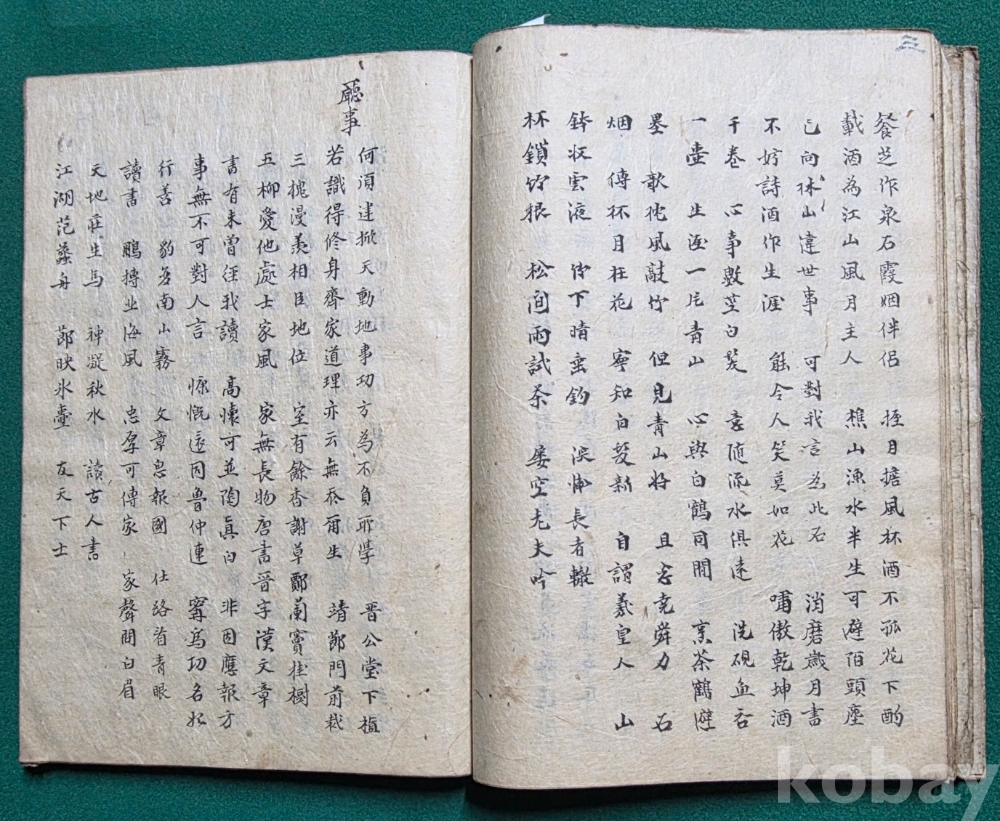 餐芝作泉石霞烟伴侣 挂月担風杯酒不孤花下酌
載酒為江山風月主人 樵山漁水半生可避陌頭塵
已向林山違世事 可對我言為此石 消磨歲月書
不妨詩酒作生涯 能令人笑莫如花 嘯傲乾坤酒
千卷 心事數莖白髮 意隨流水俱遠 洗硯魚吞
一壷 生涯一片青山 心與白鶴同閒 烹茶鶴避
墨 歌枕風敲竹 但見青山好 且忘堯舜力 石
烟 傳杯月在花 寧知白髮新 自謂羲皇人 山
鉢収雲液 竹下晴 釣 深 長者轍
杯鎖竹根 松間雨試茶 屢空老夫吟
廳事
何須建掀天動地事功方為不負所學 晋公堂下植
若識得修身齊家道理亦云無忝爾生 靖節門前栽
三槐漫羨相臣地位 室有餘香謝草鄭蘭竇桂樹
五柳愛他處士家風 家無長物唐書晋字漢文章
書有未曾經我讀 高懷可並陶真白 非因應報方
事無不可對人言 慷慨還因魯仲連 寧爲功名始
行善 豹管南山霧 文章思報國 仕路省青眼
讀書 鵬搏北海風 忠厚可傳家 家聲聞白眉
天地莊生馬 神凝秋水 讀古人書
江湖范蠡舟 節映氷壷 友天下士
kobay